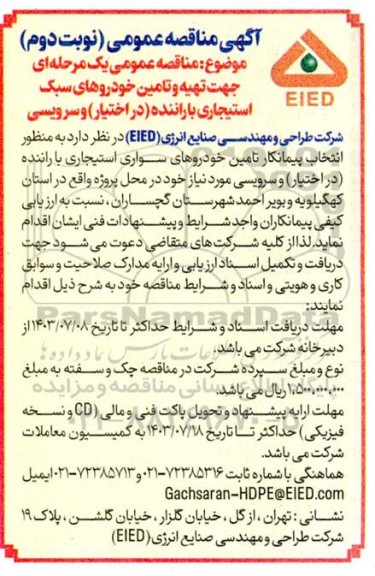 آگهی مناقصه عمومی (نوبت دوم)
موضوع: مناقصه عمومی یک مرحله ای
جهت تهیه و تامین خودروهای سبک
استیجاری با راننده (در اختیار) و سرویسی
EIED
شرکت طراحی و مهندسی صنایع انرژی (EIED) در نظر دارد به منظور
انتخاب پیمانکار تامین خودروهای سواری استیجاری با راننده
(در اختیار) و سرویسی مورد نیاز خود در محل پروژه واقع در استان
کهگیلویه و بویر احمد شهرستان گچساران، نسبت به ارزیابی
کیفی پیمانکاران واجد شرایط و پیشنهادات فنی ایشان اقدام
نماید. لذا از کلیه شرکت های متقاضی دعوت می شود جهت
دریافت و تکمیل اسناد ارزیابی و ارایه مدارک صلاحیت و سوابق
کاری و هویتی و اسناد و شرایط مناقصه خود به شرح ذیل اقدام
نمایند:
مهلت دریافت اسناد و شرایط حداکثر تا تاریخ ۱۴۰۳/۰۷/۰۸ از
دبیرخانه شرکت می باشد.
نوع و مبلغ سپرده شرکت در مناقصه چک و سفته به مبلغ
ریال می باشد.
مهلت ارایه پیشنهاد و تحویل پاکت فنی و مالی (CD و نسخه
فیزیکی) حداکثر تا تاریخ ۱۴۰۳/۰۷/۱۸ به کمیسیون معاملات
شرکت می باشد.
هماهنگی با شماره ثابت ۷۲۳۸۵۳۱۶-۰۲۱ و ۷۲۳۸۵۷۱۳-۰۲۱ ایمیل
Gachsaran-HDPE@EIED.com
نشانی: تهران، ازگل، خیابان گلزار، خیابان گلشن، پلاک ۱۹
شرکت طراحی و مهندسی صنایع انرژی (EIED)
ParsNamadData